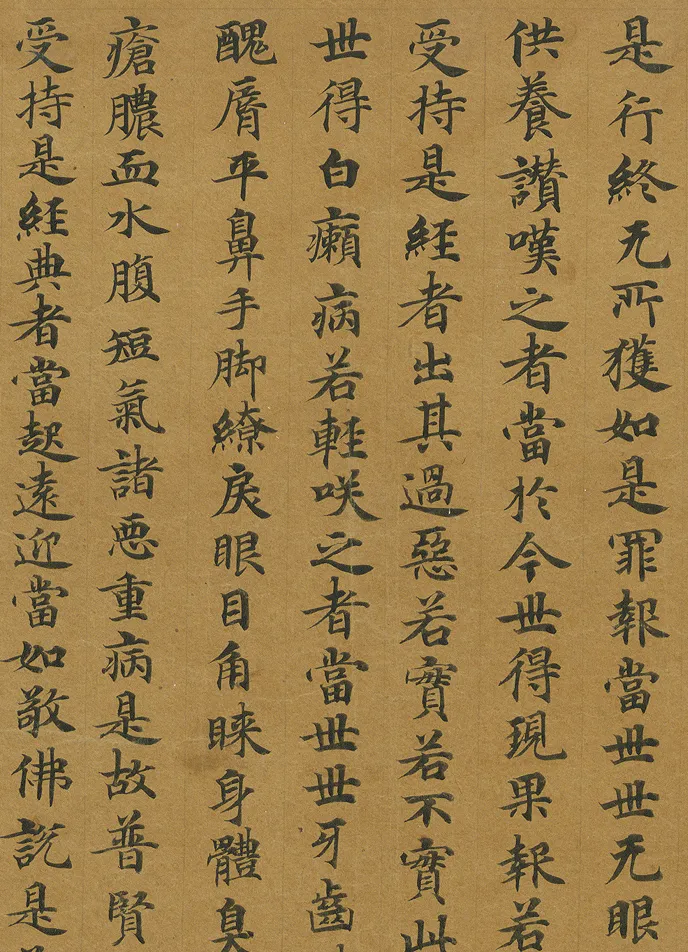 是行終无所獲如是罪報當世世无眼
供養讃嘆之者當於今世得現果報若
受持是經者出其過惡若實若不實此
世得白癩病若輕咲之者當世世牙齒
醜脣平鼻手脚繚戾眼目角睞身體臭
瘡膿血水腹短氣諸惡重病是故普賢
受持是經典者當起遠迎當如敬佛說是